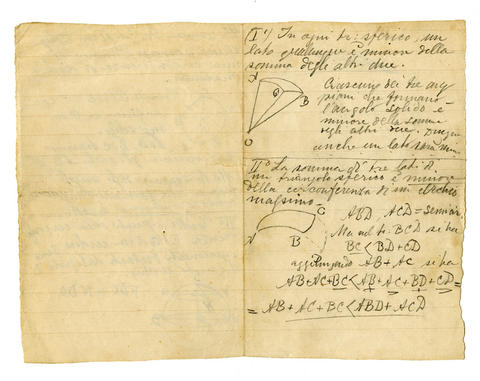 I°) In ogni tr: sferico, un
lato qualunque è minor della
somma degli altri due.
A
C
B
O
Ciascuno dei tre ang
piani che formano
l'angolo solido è
minore della somma
degli altri due. Dunque
anche un lato sarà min
II° La somma di tre lati di
un triangolo sferico è minore
della circonferenza di un circolo
massimo.
C
A
B
ABD, ACD = semicir.
Ma nel tr: BCD si ha
BC < BD + CD
aggiungendo AB + AC si ha
AB + AC + BC < AB + AC + BD + CD =
= AB + AC + BC < ABD + ACD